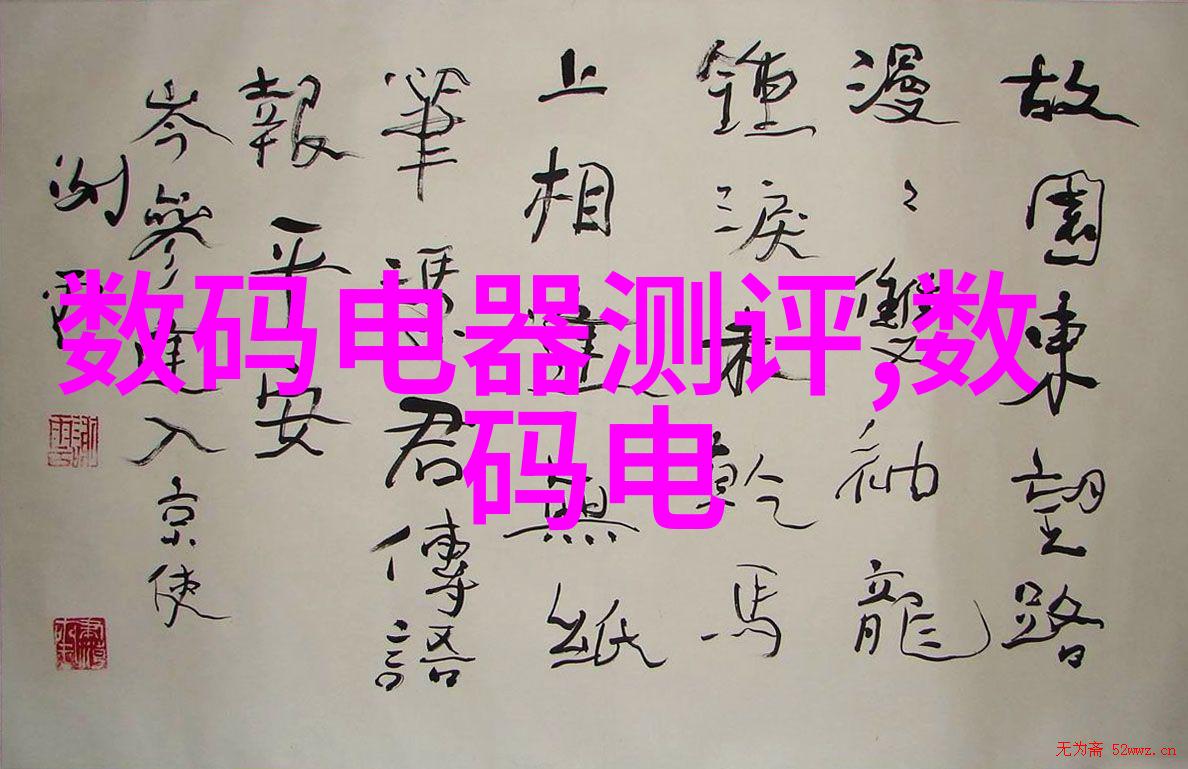 故園東望路
漫〻雙袖龍
鍾淚未乾馬
上相逢無紙
筆憑君傳語
報平安
岑參逢入京使
数码电器测评,数
码电
无为斋 52wwz.cn